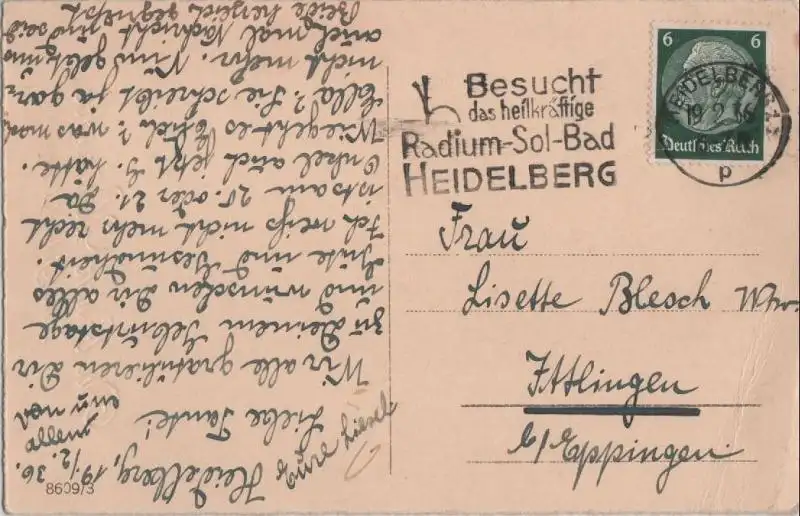 Besucht
das heilkräftige
Radium-Sol-Bad
HEIDELBERG
6 6
HEIDELBERG
19.2.36
Deutsches Reich
p
Frau
Lisette Blesch Wtw.
Ittlingen
b/Eppingen.
Heidelberg, 19./2. 36.
Liebe Tante!
Wir alle gratulieren Dir
zu Deinem Geburtstage
und wünschen Dir alles
Gute und Gesundheit.
Ich weiß nicht mehr recht
ists am 20. oder 21. Da
Onkel auch jetzt G. hatte.
Wie geht es Euch? was mach
Ella? Sie schreibt ja gar
nicht mehr. Nun gebt uns
auch mal Nachricht und seid
Beide herzlich gegrüßt
von uns
allen
Eure Liesel
8609/3